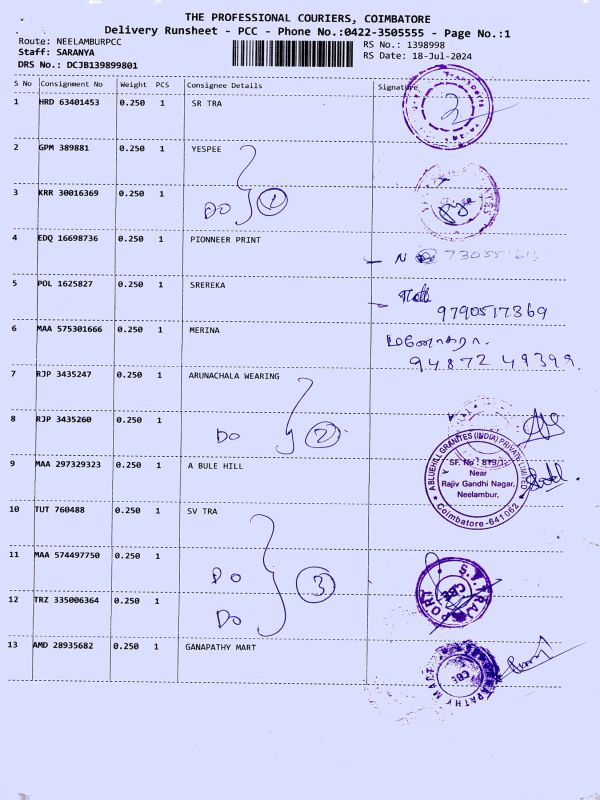 THE PROFESSIONAL COURIERS, COIMBATORE
Delivery Runsheet - PCC - Phone No.:0422-3505555 - Page No.:1
Route: NEELAMBURPCC
RS No.: 1398998
Staff: SARANYA
RS Date: 18-Jul-2024
DRS No.: DCJB139899801
S No Consignment No Weight PCS Consignee Details Signature
1 HRD 63401453 0.250 1 SR TRA
2 GPM 389881 0.250 1 YESPEE
3 KRR 30016369 0.250 1
DO 1
4 EDQ 16698736 0.250 1 PIONNEER PRINT
5 POL 1625827 0.250 1 SREREKA
9790517369
6 MAA 575301666 0.250 1 MERINA
94872 49399.
7 RJP 3435247 0.250 1 ARUNACHALA WEARING
8 RJP 3435260 0.250 1
DO 2
9 MAA 297329323 0.250 1 A BULE HILL
A BLUEHILL GRANITES (INDIA) PRIVATE LIMITED
SF. No : 879/1
Near
Rajiv Gandhi Nagar,
Neelambur,
Coimbatore - 641062
10 TUT 760488 0.250 1 SV TRA
11 MAA 574497750 0.250 1
DO
3
12 TRZ 335006364 0.250 1
DO
CBE
13 AMD 28935682 0.250 1 GANAPATHY MART
CBE